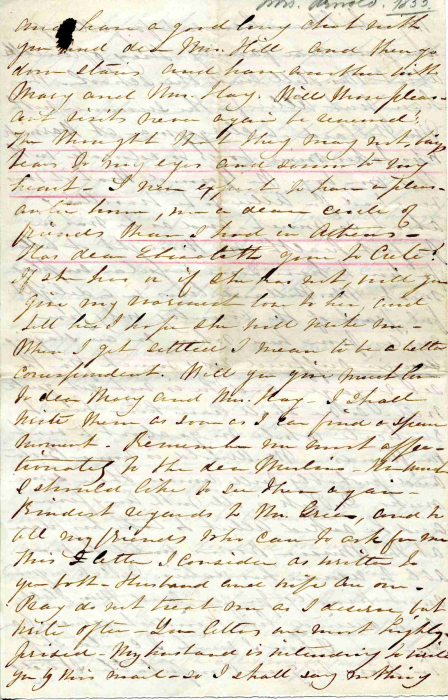 Mrs. Arnold. 1855
and have a good long chat with
you and dear Mr. Hill - and then go
down stairs and have another with
Mary and Mrs. Hay. Will those pleas-
ant visits never again be renewed?
The thought that they may not brings
tears to my eyes and sorrow to my
heart - I never expect to have a pleas-
anter home, nor a dearer circle of
friends than I had in Athens -
Has dear Elizabeth gone to
if she has or if she has not, will you
give my warmest love to her and
tell her I hope she will write me -
When I get settled I mean to be a better
correspondent. Will you give much love
to dear Mary and Mr. Hay - I shall
write them as soon as I can find a spare
moment - Remember me most affec-
tionately to the dear
I should like to see them again -
Kindest regards to Mr and to
all my friends who care to ask for me
This letter I consider as written to
you both - Husband and wife are one -
Pray do not treat me as I deserve, but
write often - Your letters are most highly
prized - My husband is intending to write
you by this mail - so I shall say nothing